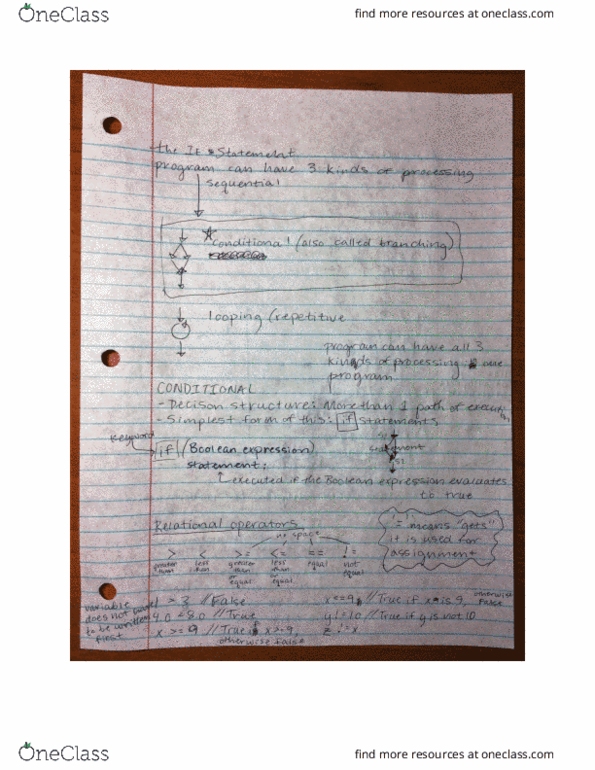 OneClass
find more resources at oneclass.com
the IF Statement
program can have 3 kinds of processing
sequential
conditional (also called branching)
looping (repetitive
program can have all 3
kinds of processing one
program
CONDITIONAL
- Decison structure: More than 1 path of
- Simplest form of this: if statements
keyword
if (Boolean expression)
statement;
executed if the Boolean expression evaluates
to true
Relational operators
no space
> < >= <= == !=
greater than
less than
greater than or equal
less than or equal
equal
not equal
= means "gets"
it is used for
assignment
variable
does not have
to be written
first
1 > 3 // False
// True
x >= 9 // True if x >= 9
otherwise false
x == 9 // True if x is 9, otherwise False
y != 10 // True if y is not 10
z != x
OneClass
find more resources at oneclass.com